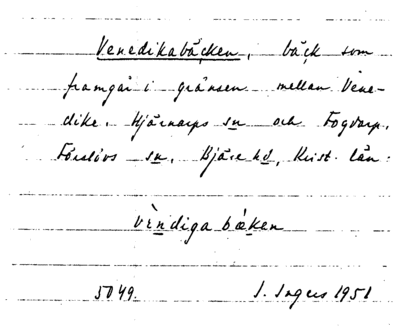 Venedikabäcken, bäck som
framgår i gränsen mellan Vene-
dike, Hjärnarps sn och Fogdarp,
Förslövs sn, Bjäre hd, Krist. län.
vèndiga bäken
5049. I. Ingers 1951